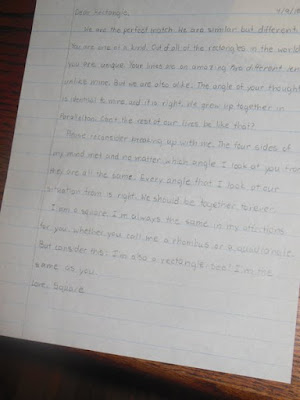 Dear Rectangle,
We are the perfect match. We are similar but different.
You are one of a kind. Out of all of the rectangles in the world
you are unique. Your lines are an amazing two different
unlike mine. But we are also alike. The angle of your thought
is identical to mine and it's right. We grew up together in
parallelism. Can't the rest of our lives be like that?
Please reconsider breaking up with me. The four sides of
my mind met and no matter which angle I look at you from
they are all the same. Every angle that I look at our
situation from is right. We should be together forever.
I am a square. I'm always the same in my affections
for you, whether you call me a rhombus or a quadrilateral.
But consider this: I'm also a rectangle too! I'm the
same as you.
Love, Square